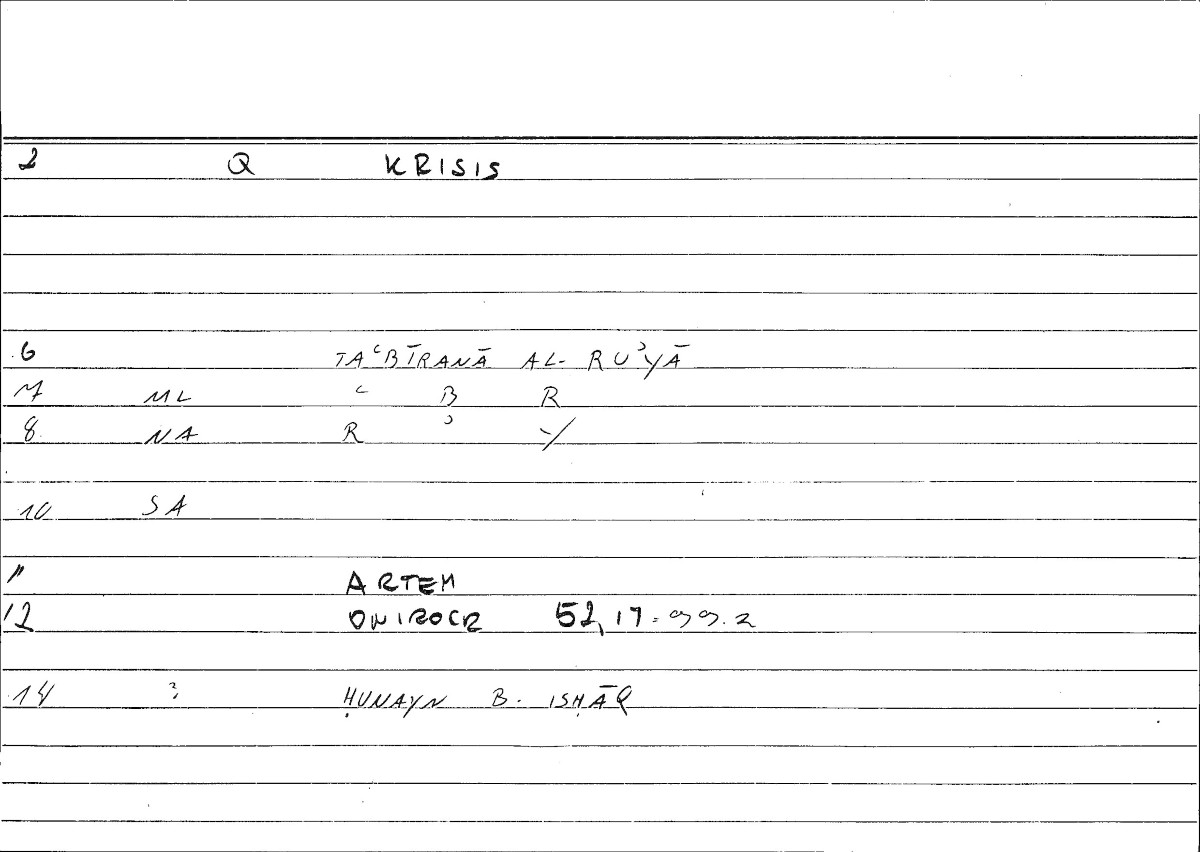 2 Q KRISIS
6 TAʿBĪRANĀ AL-RUʾYĀ
7 ML ʿ B R
8 NA R ʾ Y
10 SA
11 ARTEM
12 ONIROCR 52,17 = 99.2
14 ? ḤUNAYN B. ISḤĀQ